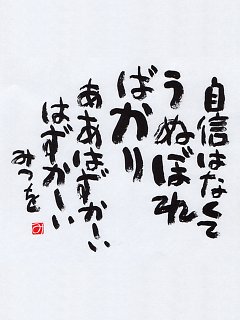 自信はなくて
うぬぼれ
ばかり
ああはずかしい
はずかしい
みつを